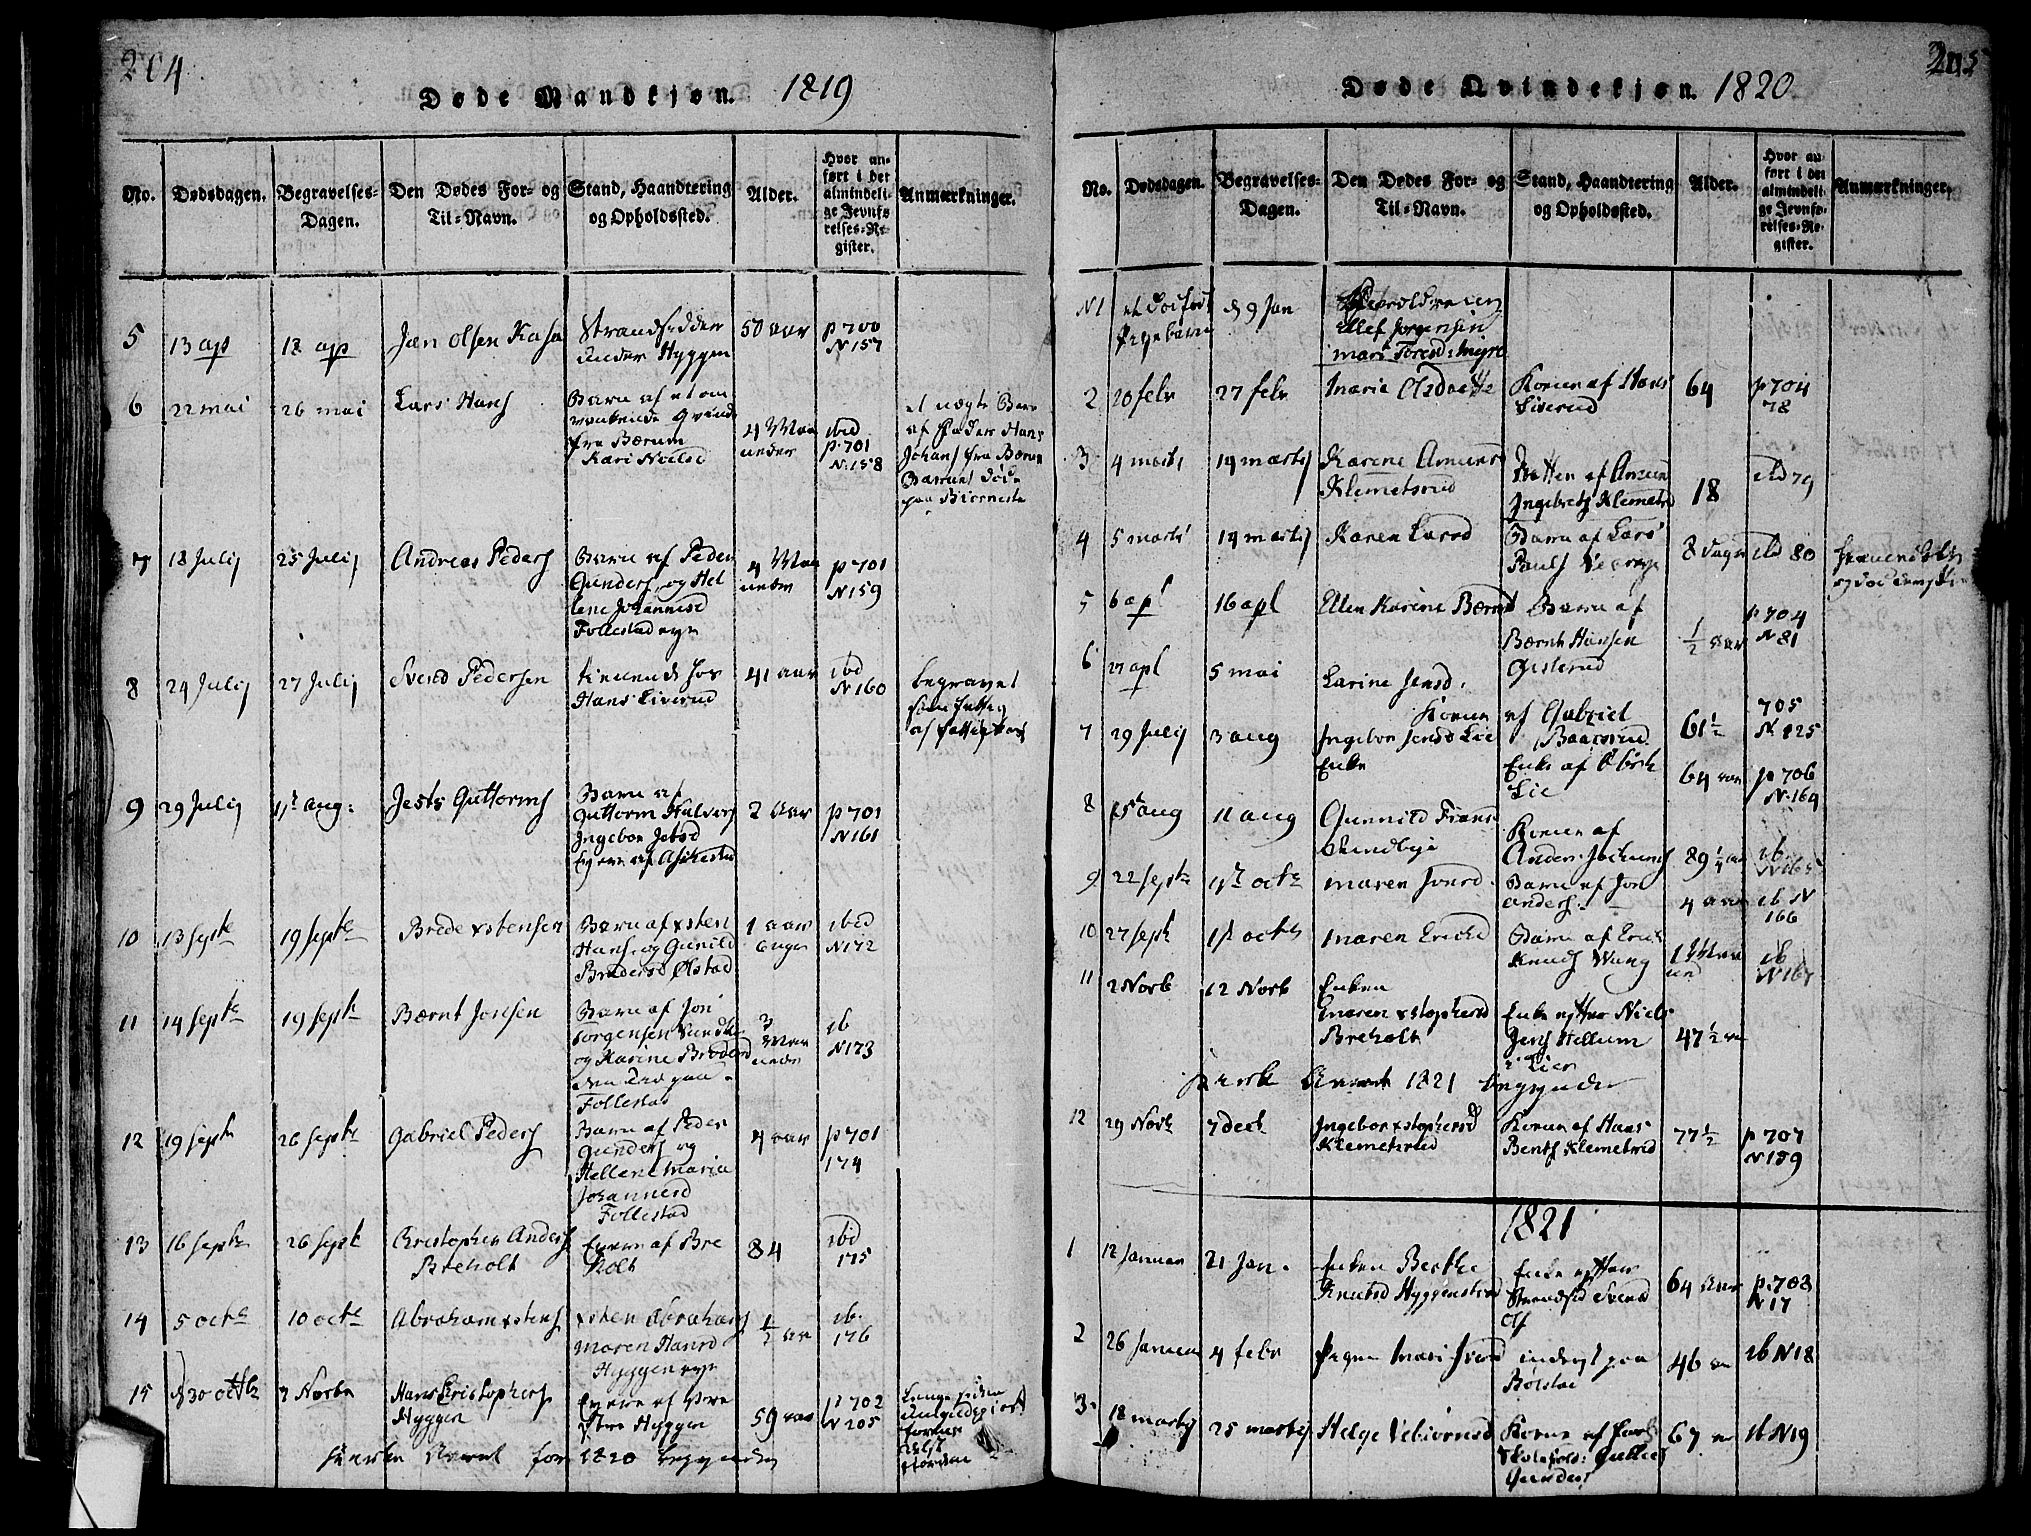 204
Døde Mandkjøn. 1819
No.
Dødsdagen.
Begravelses-
Dagen.
Den Dødes For- og
Til-Navn.
Stand, Haandtering
og Opholdssted.
Alder.
Hvor an-
ført i det
almindeli-
ge Jevnfø-
relses-Re-
gister.
Anmærkninger.
5
13 ap
18 ap
Jan Olsen Kasa
Strandsidder
under Hyggen
50 aar
p 700
N 157
6
22 mai
26 mai
Lars Hans
Barn af et om
vankende Qvinde
fra Bærum
Kari Nielsd
4 Maa
neder
ibid
p. 701
N. 158
et uægte Barn
af Fader Hans
Johans fra Bærum
Barnet døde
paa
7
18 Julij
25 Julij
Andreas Peders
Barn af Peder
Gunders og Hel
lene Johannesd
Follestad eye
4 Maa
neder
p 701
N 159
8
24 Julij
27 Julij
Svend Pedersen
tienende hos
Hans Liverud
41 aar
ibd
N 160
begravet
som fattig
9
29 Julij
1st aug:
Jests Guttorms
Barn af
Guttorm Halvors
Ingebor Jetsd
2 Aar
p 701
N 161
10
13 Septe
19 Septe
Brede xstensen
Barn af xsten
Hans. og Gunild
Bredersd Ølstad
1 aar
6 uger
ibid
N 172
11
14 Septe
19 Septe
Bærnt Jonsen
Barn af Jon
Jorgensen Sundbye
og Karine Bredersd
Follestad
3
Maa
neder
ib
N 173
12
19 Septe
26 Septe
Gabriel Peders
Barn af Peder
Gunders og
Hellene Maria
Johannesd
Follestad
4 aar
p 701
174
13
16 Septe
26 Septe
Christopher Anders
Breholt
af Bre
holt
84
ibid
175
14
5 octe
10 octe
Abraham xstens
xsten Abrahams
Maren Hansd
Hyggen eye
½ aar
ib.
176
15
d 30 octbe
7 Norbe
Hans Cristophers
Hyggen
af
Hyggen
59 aar
p 702
N 205
Aaret for 1820 begynder
205
Døde Qvindekjøn. 1820
No.
Dødsdagen.
Begravelses-
Dagen.
Den Dødes For- og
Til-Navn.
Stand, Haandtering
og Opholdssted.
Alder.
Hvor an-
ført i det
almindeli-
ge Jevnfø-
relses-Re-
gister.
Anmærkninger.
N1
et dødfødt
Pigebarn
d 9 Jan
Ellef Jorgensen
Mari Toresd: Myre
2
20 febr
27 febr
Marie Olsdatte
Konen af Hans
Liverud
64
p 704
78
3
4 marts
19 martsj
Karine Amunsd
Klemetsrud
Datter af Amun
Ingebrets Klemetsrud
18
ibd 79
4
5 marts
19 martsj
Karen Larsd
Barn af Lars
Pauls
8 dage
ibd 80
5
6 apl
16 apl
Ellen Karine Bærntsd
Barn af
Bærnt Hansen
Gisterud
½ aar
p 704
N 81
6
27 apl
5 mai
Larine Jensd.
Konen af Gabriel
61½
705
N 125
7
29 Julij
3 aug
Ingebor Jensd Lie
Enke
Enke af
Lie
64 aar
p 706
N. 164
8
5t aug
11 aug
Gunnild Frans
Sundbye
Konen af
Anders Jochums
89 ¼ aar
ib.
N 165
9
22 Septe
1st octe
Maren Jonsd.
Barn af Jon
Anders.
4 aar
ib N
166
10
27 Septe
1st octe
Maren Ericsd
Barn af Eric
Knuds Wang
ib
N 167
11
2 Norb
12 Norb
Enken
Maren xstophersd
Breholt
Enke efter Niels
Jens Hellum
i Lier
47 ½ aar
Aaret 1821 begynder
12
29 Norb
7 decb
Ingebor xstophersd
Klemetsrud
Konen af Hans
Bents Klemetsrud
77½
p 707
N 189
1821
1
12 Januar
21 Jan.
Enken Berthe
Knutsd Hyggenstrand
Enke efter
Strandsid Svend
64 Aar
p. 708
N 17
2
26 Januar
4 febr
Pigen Mari
inderst paa
Bølstad
46 aar
ib N 18
3
18 martsj
25 martsj
Helge
Konen af
Gunders
67 aar
ib N 19